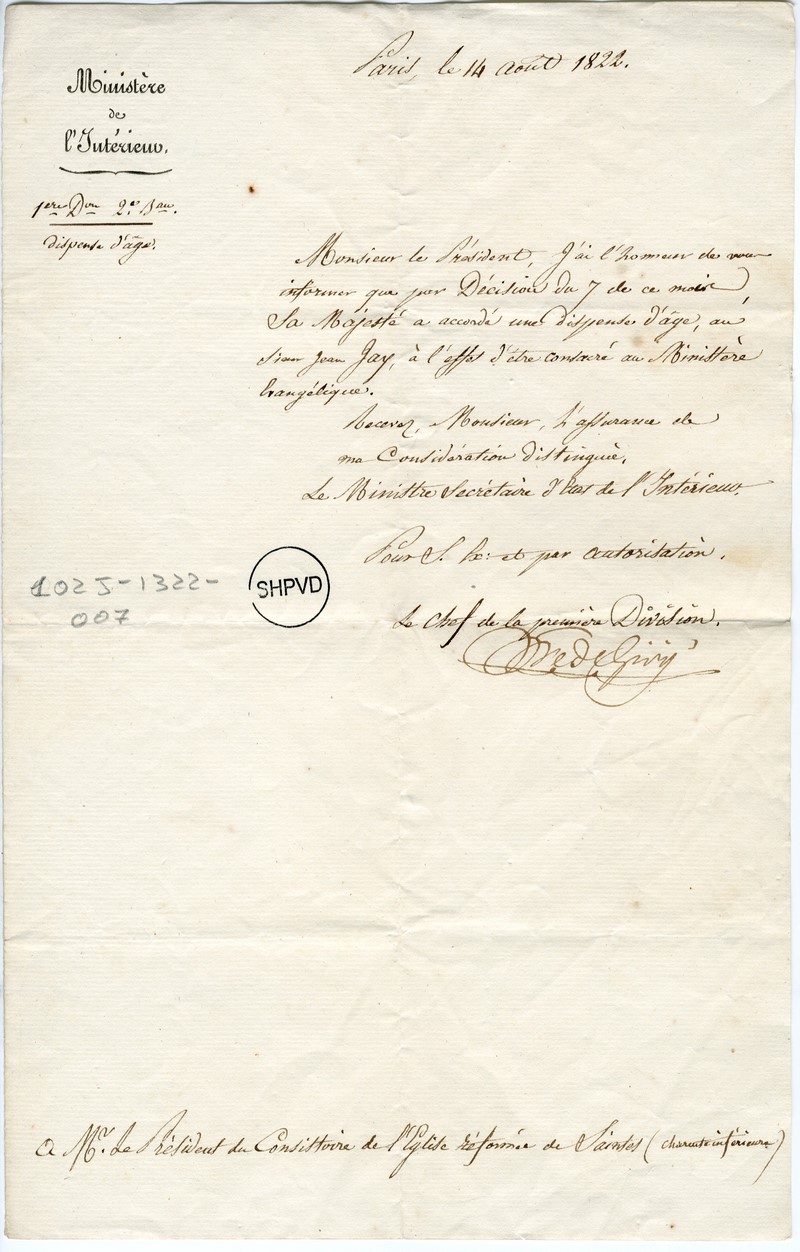 Paris, le 14 août 1822.
Ministère
de
l'Intérieur.
1ere Don 2e Bau.
dispense d'âge.
Monsieur le Président, J'ai l'honneur de vous
informer que par Décision du 7 de ce mois
Sa Majesté a accordé une dispense d'âge, au
sieur Jean Jay, à l'effet d'être consacré au Ministère
Evangélique.
Recevez, Monsieur, l'assurance de
ma Considération distinguée,
Le Ministre Secrétaire d'Etat de l'Intérieur.
Pour S. Ex: et par autorisation.
1025-1322-
007
SHPVD
Le chef de la première Division.
a Mr. Le Président du Consistoire de l'Eglise réformée de Saintes (charente inférieure)